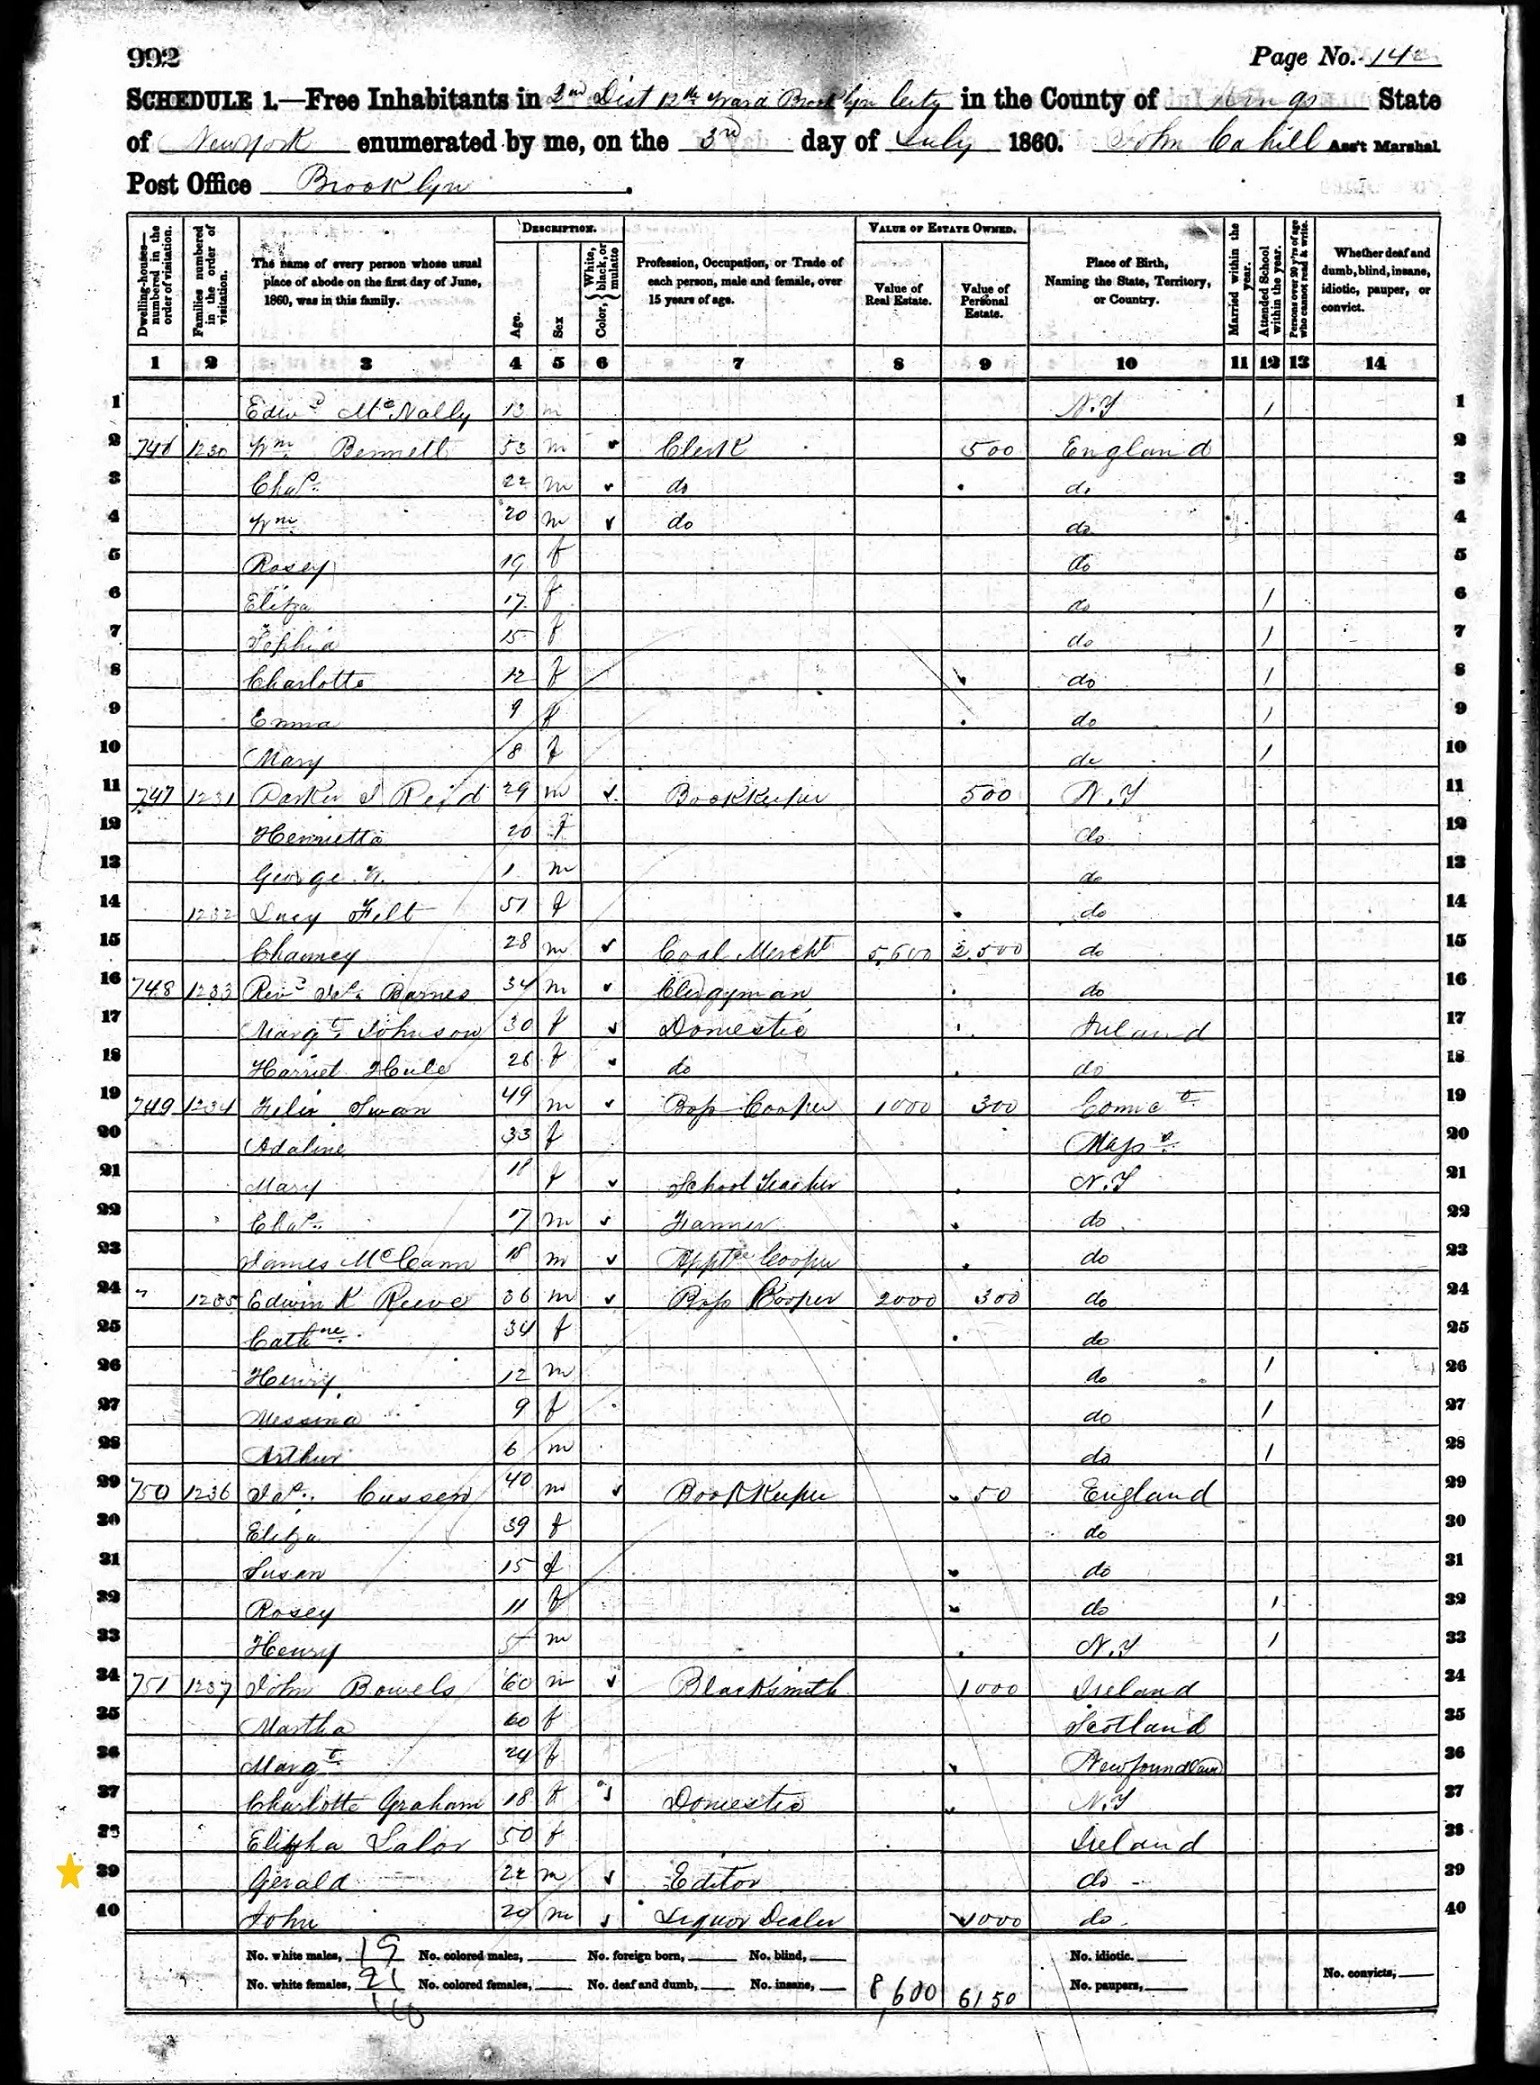 992
Page No. 142
SCHEDULE 1.—Free Inhabitants in 2nd Dist 12th Ward Brooklyn City in the County of Kings State
of New York enumerated by me, on the 3rd day of July 1860. John Cahill Ass't Marshal
Post Office Brooklyn.
Dwelling-houses—numbered in the order of visitation.
Families numbered in the order of visitation.
The name of every person whose usual place of abode on the first day of June, 1860, was in this family.
DESCRIPTION.
Age.
Sex
Color, { White, black, or mulatto
Profession, Occupation, or Trade of each person, male and female, over 15 years of age.
VALUE OF ESTATE OWNED.
Value of Real Estate.
Value of Personal Estate.
Place of Birth, Naming the State, Territory, or Country.
Married within the year.
Attended School within the year.
Persons over 20 y'rs of age who cannot read & write.
Whether deaf and dumb, blind, insane, idiotic, pauper, or convict.
1 2 3 4 5 6 7 8 9 10 11 12 13 14
1 Edwd McNally 13 m N.Y / 1
2 746 1230 Wm Bennett 53 m Clerk 500 England 2
3 Chas 22 m do do 3
4 Wm 20 m do do 4
5 Rosey 19 f do 5
6 Eliza 17 f do / 6
7 Sophia 15 f do / 7
8 Charlotte 12 f do / 8
9 Emma 9 f do / 9
10 Mary 8 f do / 10
11 747 1231 Reid 29 m Bookkeeper 500 N.Y 11
12 Henrietta 20 f do 12
13 George W. 1 m do 13
14 1232 Lucy Felt 51 f do 14
15 Chauncy 28 m Coal Mercht 5,600 2,500 do 15
16 748 1233 Revd Jas Barnes 34 m Clergyman do 16
17 Margt Johnson 30 f Domestic Ireland 17
18 Harriet 26 f do do 18
19 749 1234 Felix Swan 49 m Boss Cooper 1000 300 Connect 19
20 Adaline 33 f Mass 20
21 Mary 18 f School Teacher N.Y 21
22 Chas 17 m Farmer do 22
23 James McCann 18 m Apptce Cooper do 23
24 " 1235 Edwin K Reeve 36 m Boss Cooper 2000 300 do 24
25 Cathne 34 f do 25
26 Henry 12 m do / 26
27 Messina 9 f do / 27
28 Arthur 6 m do / 28
29 750 1236 Jas Cussen 40 m Bookkeeper 50 England 29
30 Eliza 39 f do 30
31 Susan 15 f do 31
32 Rosey 11 f do / 32
33 Henry 5 m N.Y / 33
34 751 1237 John Bowels 60 m Blacksmith 1000 Ireland 34
35 Martha 60 f Scotland 35
36 Margt 24 f Newfoundland 36
37 Charlotte Graham 18 f Domestic N.Y 37
38 Lalor 50 f Ireland 38
39 Gerald 22 m Editor do 39
40 John 20 m Liquor Dealer 1000 do 40
No. white males, 19 No. colored males, No. foreign born, No. blind, No. idiotic.
No. white females, 21 No. colored females, No. deaf and dumb, No. insane, 8,600 6150 No. paupers, No. convicts,
40